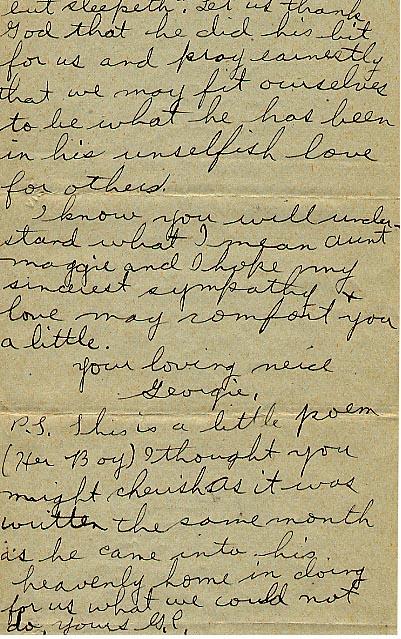 but sleepeth". Let us thank
God that he did his bit
for us and pray earnestly
that we may fit ourselves
to be what he has been
in his unselfish love
for others.
I know you will under-
stand what I mean aunt
maggie and I hope my
sincerest sympathy &
love may comfort you
a little.
your loving neice
Georgie.
P.S. This is a little poem
(Her Boy) I thought you
might cherish as it was
written the same month
as he came into his
heavenly home in doing
for us what we could not
do. yours G.P.